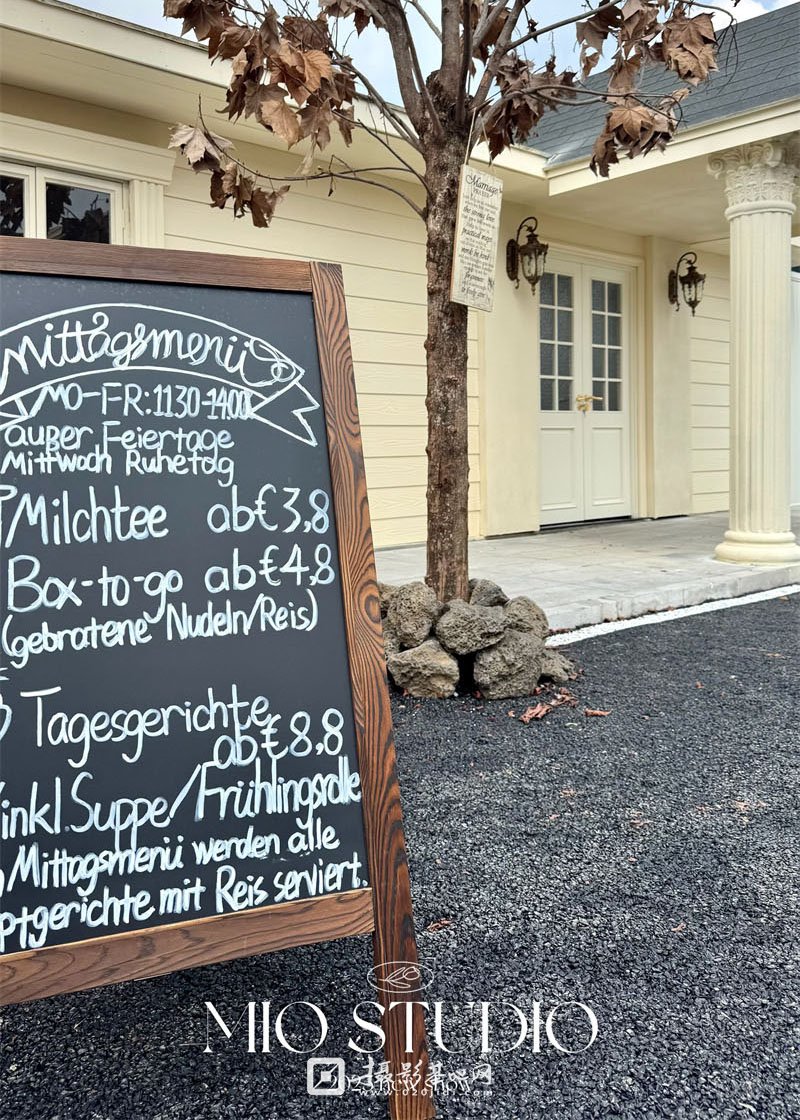 mittagsmenü
MO-FR:1130-14.00
außer Feiertage
Mittwoch Ruhetag
Milchtee ab€3,8
Box-to-go ab€4,8
(gebratene Nudeln/Reis)
Tagesgerichte
ab€8,8
inkl.Suppe/Frühlingsrolle
Mittagsmenü werden alle
ptgerichte mit Reis serviert.
Marriage
MIO STUDIO
摄影基地网